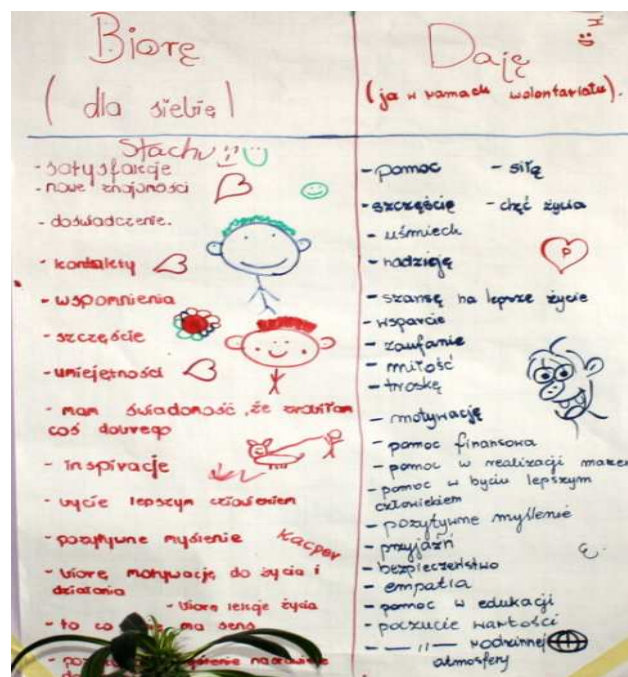 Biorę
(dla siebie)
Stachu
- satysfakcje
- nowe znajomości
- doświadczenie.
- kontakty
- wspomnienia
- szczęście
- umiejętności
- mam świadomość, że zrobiłam
coś dobrego
- inspiracje
- bycie lepszym człowiekiem
- pozytywne myślenie
Kacper
- biorę motywację do życia i
działania
- biorę lekcje życia
- to co ma sens
Daję
(ja w ramach wolontariatu).
- pomoc - siłę
- szczęście - chęć życia
- uśmiech
- nadzieję
P
- szansę na lepsze życie
- wsparcie
- zaufanie
- miłość
- troskę
- motywację
- pomoc finansowa
- pomoc w realizacji marzeń
- pomoc w byciu lepszym
człowiekiem
- pozytywne myślenie
- przyjaźń
- bezpieczeństwo
- empatia
- pomoc w edukacji
- poczucie wartości
- — 11 — rodzinnej
atmosfery